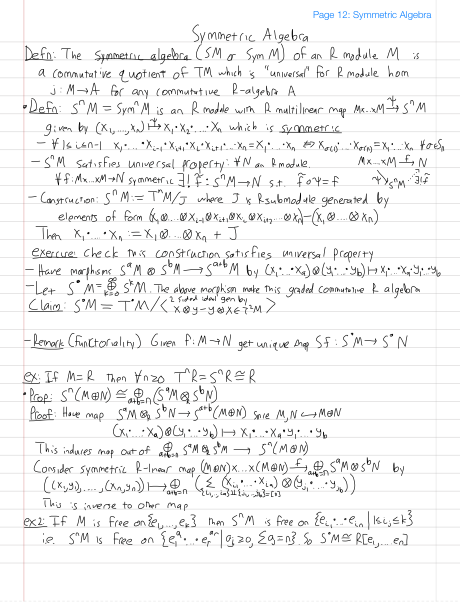 Page 12: Symmetric Algebra
Symmetric Algebra
Defn: The symmetric algebra (SM or Sym M) of an R module M is
a commutative quotient of TM which is "universal" for R module hom
j: M→A for any commutative R-algebra A
• Defn: SⁿM = SymⁿM is an R module with R multilinear map Mx...xM →^ψ SⁿM
given by (x₁,...,xₙ) ↦^ψ x₁·x₂·...·xₙ which is symmetric
- ∀ 1≤i≤n-1 x₁·...·xᵢ·xᵢ₊₁·xᵢ₊₂...·xₙ = x₁·...·xₙ ⇔ x_σ(1)·...·x_σ(n) = x₁·...xₙ ∀σ∈Sₙ
- SⁿM satisfies universal property: ∀N an R module. Mx...xM →^f N
∀f: Mx...xM→N symmetric ∃! f̃: SⁿM→N s.t. f̃∘ψ=f ψ↘ SⁿM ↗∃!f̃
- Construction: SⁿM := TⁿM/J where J is R submodule generated by
elements of form (x₁⊗...⊗xᵢ₋₁⊗xᵢ₊₁⊗xᵢ⊗xᵢ₊₂...⊗xₙ)-(x₁⊗...⊗xₙ)
Then x₁·...·xₙ := x₁⊗...⊗xₙ + J
exercise: check this construction satisfies universal property
- Have morphisms SᵃM ⊗ SᵇM → Sᵃ⁺ᵇM by (x₁·...·xₐ)⊗(y₁·...·y_b) ↦ x₁·...·xₐ·y₁·...·y_b
- Let S•M = ⊕_{k=0}^∞ SᵏM. The above morphism make this graded commutative R algebra
Claim: S•M = T•M/⟨2 sided ideal gen by x⊗y-y⊗x∈T²M⟩
- Remark (functoriality) Given f: M→N get unique map Sf: S•M→S•N
ex: If M=R Then ∀n≥0 TⁿR=SⁿR≅R
• Prop: Sⁿ(M⊕N) ≅ ⊕_{a+b=n}(SᵃM⊗_R SᵇN)
Proof: Have map SᵃM⊗_R SᵇN → Sᵃ⁺ᵇ(M⊕N) since M,N ↪ M⊕N
(x₁·...·xₐ)⊗(y₁·...·y_b) ↦ x₁·...·xₐ·y₁·...·y_b
This induces map out of ⊕_{a+b=n} SᵃM⊗SᵇM → Sⁿ(M⊕N)
Consider symmetric R-linear map (M⊕N)x...x(M⊕N) →^f ⊕_{a+b=n} SᵃM⊗SᵇN by
((x₁,y₁),...,(xₙ,yₙ)) ↦ ⊕_{a+b=n} (Σ_{{i₁,...,iₐ}⊔{j₁,...,j_b}=[n]} (x_{i₁}·...·x_{iₐ})⊗(y_{j₁}·...·y_{j_b}))
This is inverse to other map
ex2: If M is free on {e₁,...,eₖ} then SⁿM is free on {e_{i₁}·...·e_{iₙ} | 1≤iⱼ≤k}
i.e. SⁿM is free on {e₁^{a₁}·...·eᵣ^{aᵣ} | aⱼ≥0, Σaⱼ=n}. So S•M≅R[e₁,...,eₙ]